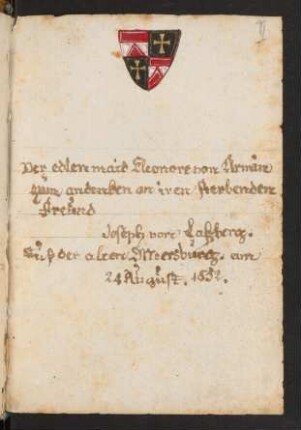 Der edlen maid Eleonore von Arman
zum andenken an iren sterbenden
freund
Joseph von Laßberg.
Auf der alten Meersburg. am
24 August. 1852.